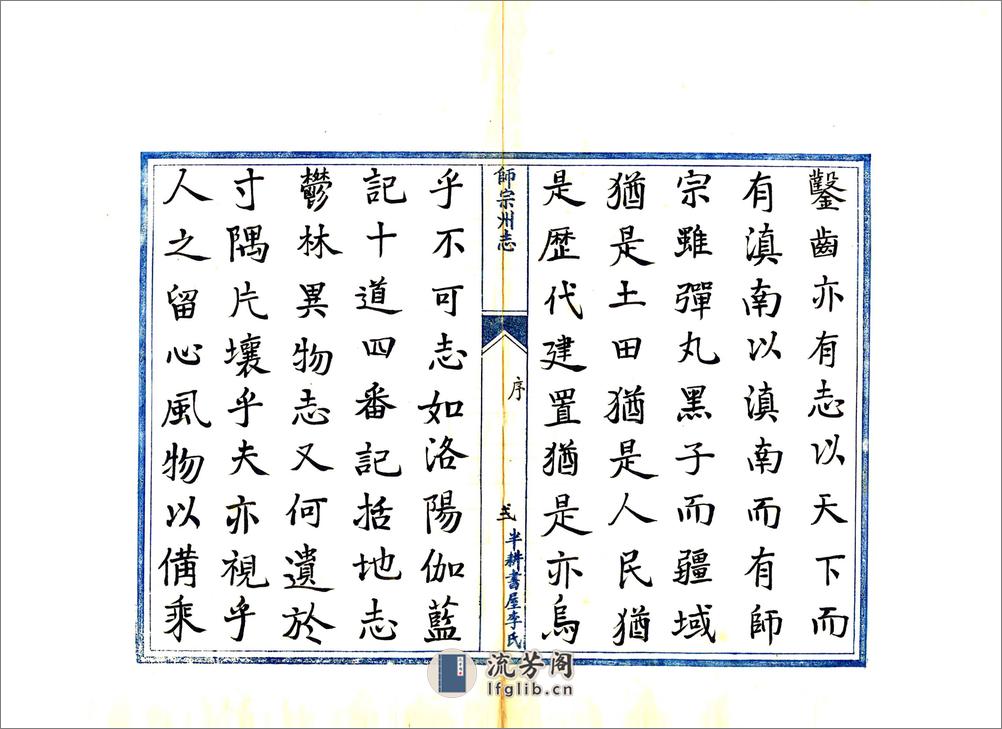 鑿齒亦有志以天下而
有滇南以滇南而有師
宗雖彈丸黑子而疆域
猶是土田猶是人民猶
是歷代建置猶是亦烏
師宗州志
序
弍
半耕書屋李氏
乎不可志如洛陽伽藍
記十道四番記括地志
鬱林異物志又何遺於
寸隅片壤乎夫亦視乎
人之留心風物以備乘
流芳阁
lfglib.cn